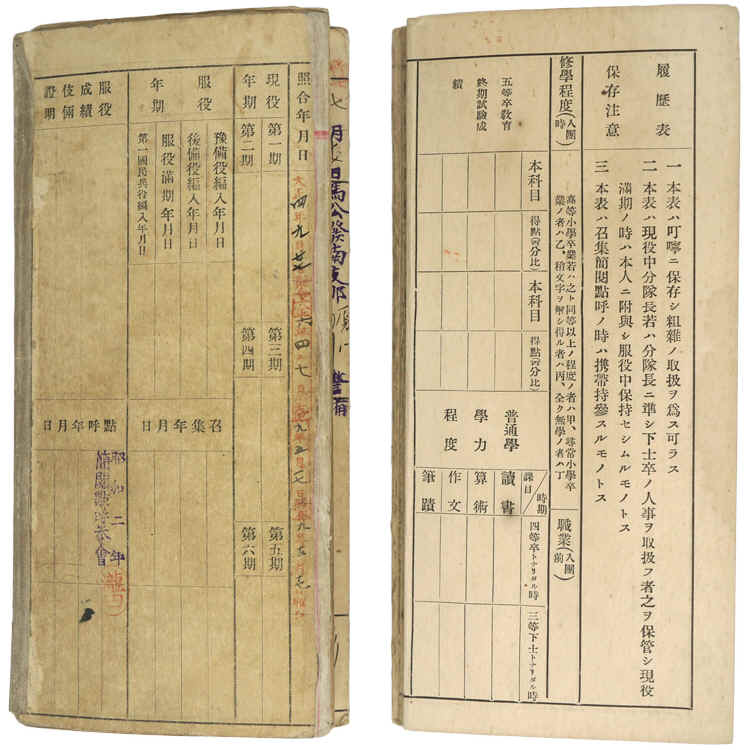 照合年月日
現役
年期
第一期
第二期
第三期
第四期
第五期
第六期
服役
年期
豫備役編入年月日
後備役編入年月日
服役滿期年月日
第一國民兵役編入年月日
服役
成績
伎倆
證明
召集年月日
點呼年月日
昭和二年
簡閲點呼参會
履歴表
保存注意
一 本表ハ叮嚀ニ保存シ粗雜ノ取扱ヲ爲ス可ラス
二 本表ハ現役中分隊長若ハ分隊長ニ準シ下士卒ノ人事ヲ取扱フ者之ヲ保管シ現役
滿期ノ時ハ本人ニ附與シ服役中保持セシムルモノトス
三 本表ハ召集簡閲點呼ノ時ハ携帶持參スルモノトス
修學程度(入團時)
高等小學卒業若ハ之ト同等以上ノ程度ノ者ハ甲、尋常小學卒
業ノ者ハ乙、稍文字ヲ解シ得ル者ハ丙、全ク無學ノ者ハ丁
職業(入團前)
五等卒教育
終期試驗成
績
本科目
得點(百分比)
本科目
得點(百分比)
普通學
學力
程度
時期
課目
讀書
算術
作文
筆蹟
四等卒トナリタル時
三等下士トナリタル時